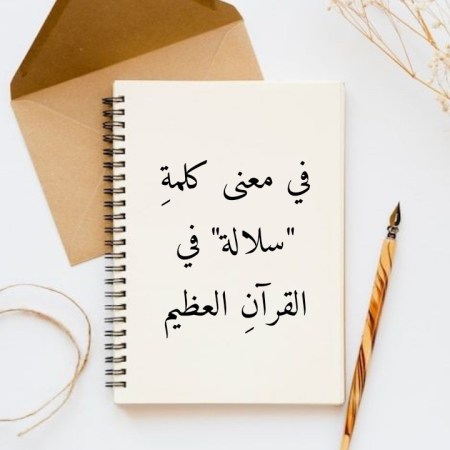 في معنى كلمةِ
"سلالة" في
القرآنِ العظيم